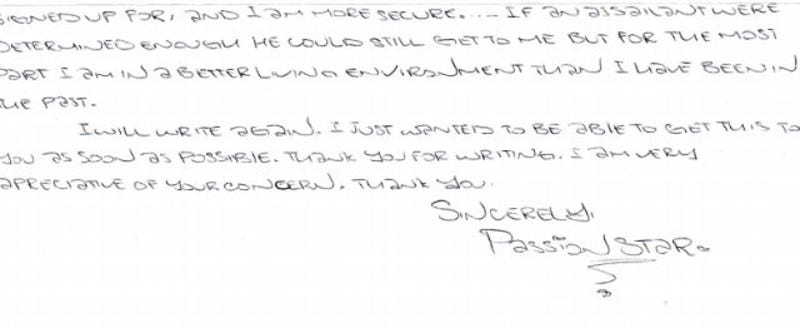 SIGNED UP FOR, AND I AM MORE SECURE.... IF AN ASSAILANT WERE
DETERMINED ENOUGH HE COULD STILL GET TO ME BUT FOR THE MOST
PART I AM IN A BETTER LIVING ENVIRONMENT THAN I HAVE BEEN IN
THE PAST.
I WILL WRITE AGAIN. I JUST WANTED TO BE ABLE TO GET THIS TO
YOU AS SOON AS POSSIBLE. THANK YOU FOR WRITING. I AM VERY
APRECIATIVE OF YOUR CONCERN. THANK YOU.
SINCERELY,
PASSION STAR